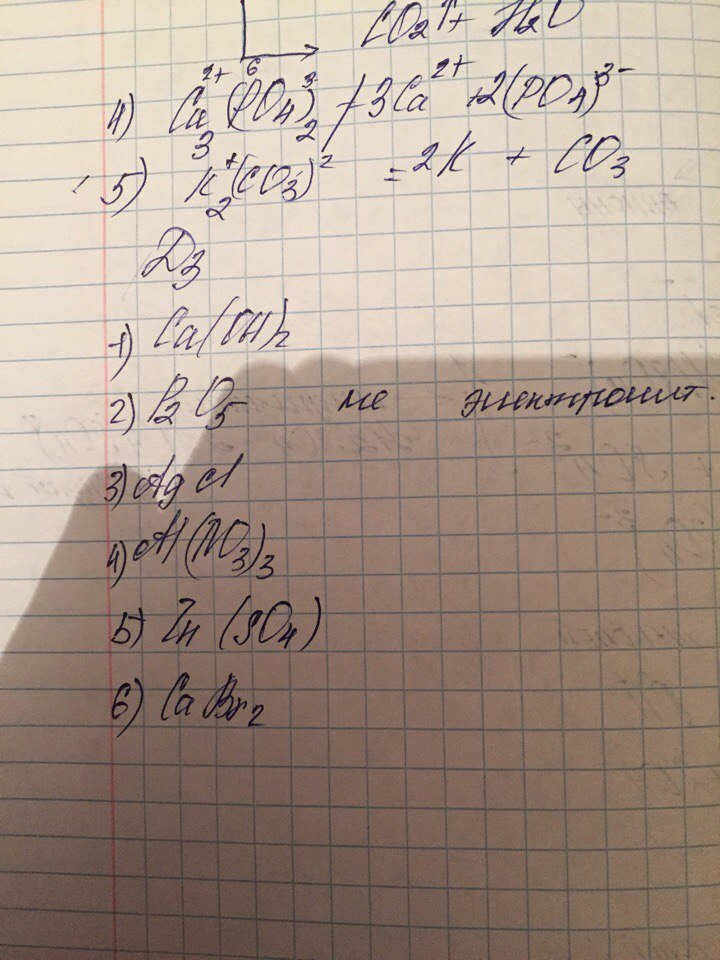 CO₂↑ + H₂O
4) Ca₃²⁺(PO₄)₂³⁻ ⁄ 3Ca²⁺ + 2(PO₄)³⁻
5) K₂⁺(CO₃)² = 2K + CO₃
Дз
1) Ca(OH)₂
2) P₂O₅ не электролит.
3) AgCl
4) Al(NO₃)₃
5) Zn(SO₄)
6) CaBr₂